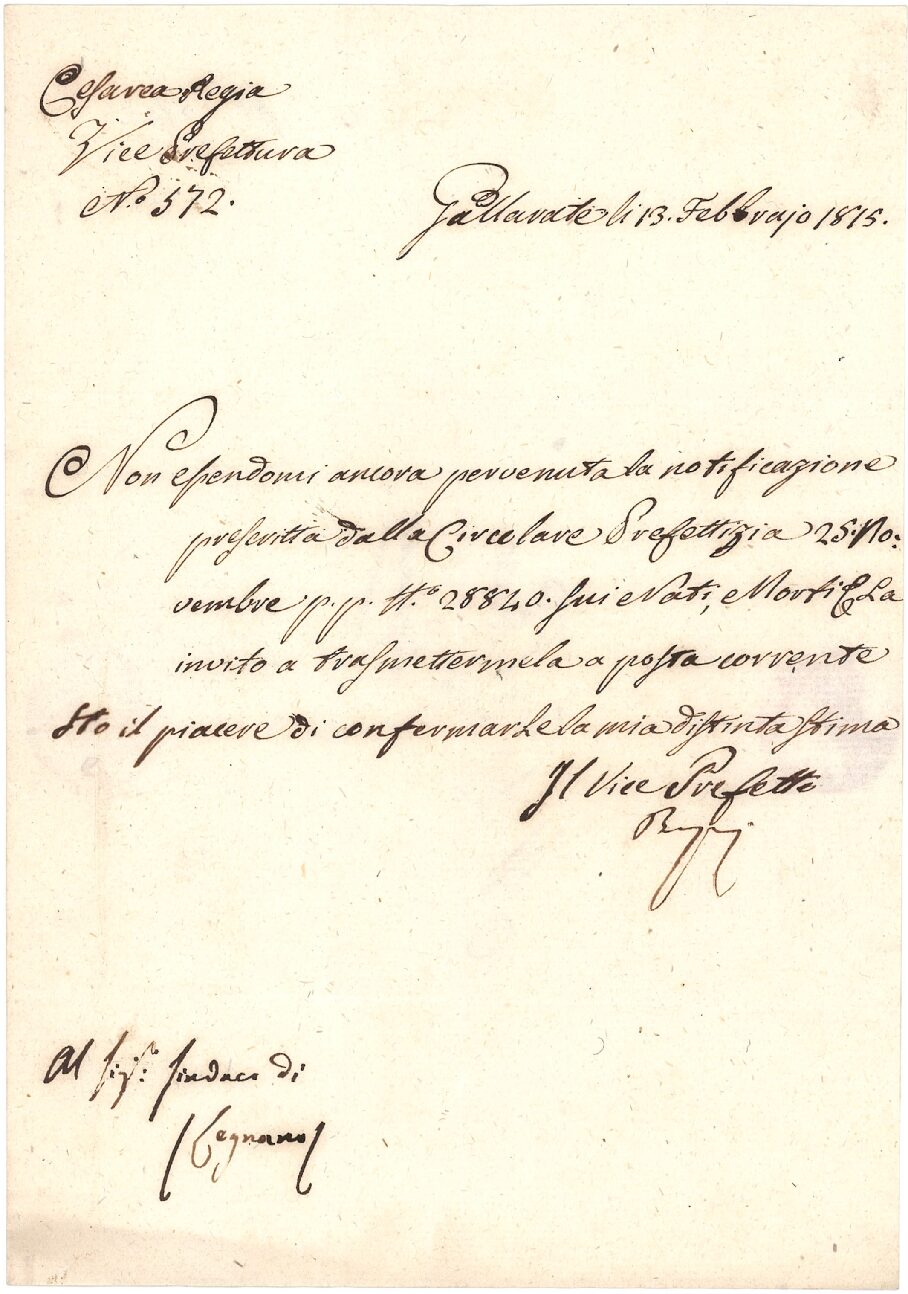 Cesarea Regia
Vice Prefettura
N.o 572.
Gallarate li 13. Febbrajo 1815.
Non essendomi ancora pervenuta la notificazione
prescritta dalla Circolare Prefettizia 25. No:
vembre p. p. N.o 28840. sui Nati, e Morti La
invito a trasmettermela a posta corrente
Ho il piacere di confermarLe la mia distinta stima
Il Vice Prefetto
Al Sig.r Sindaco di
Legnano